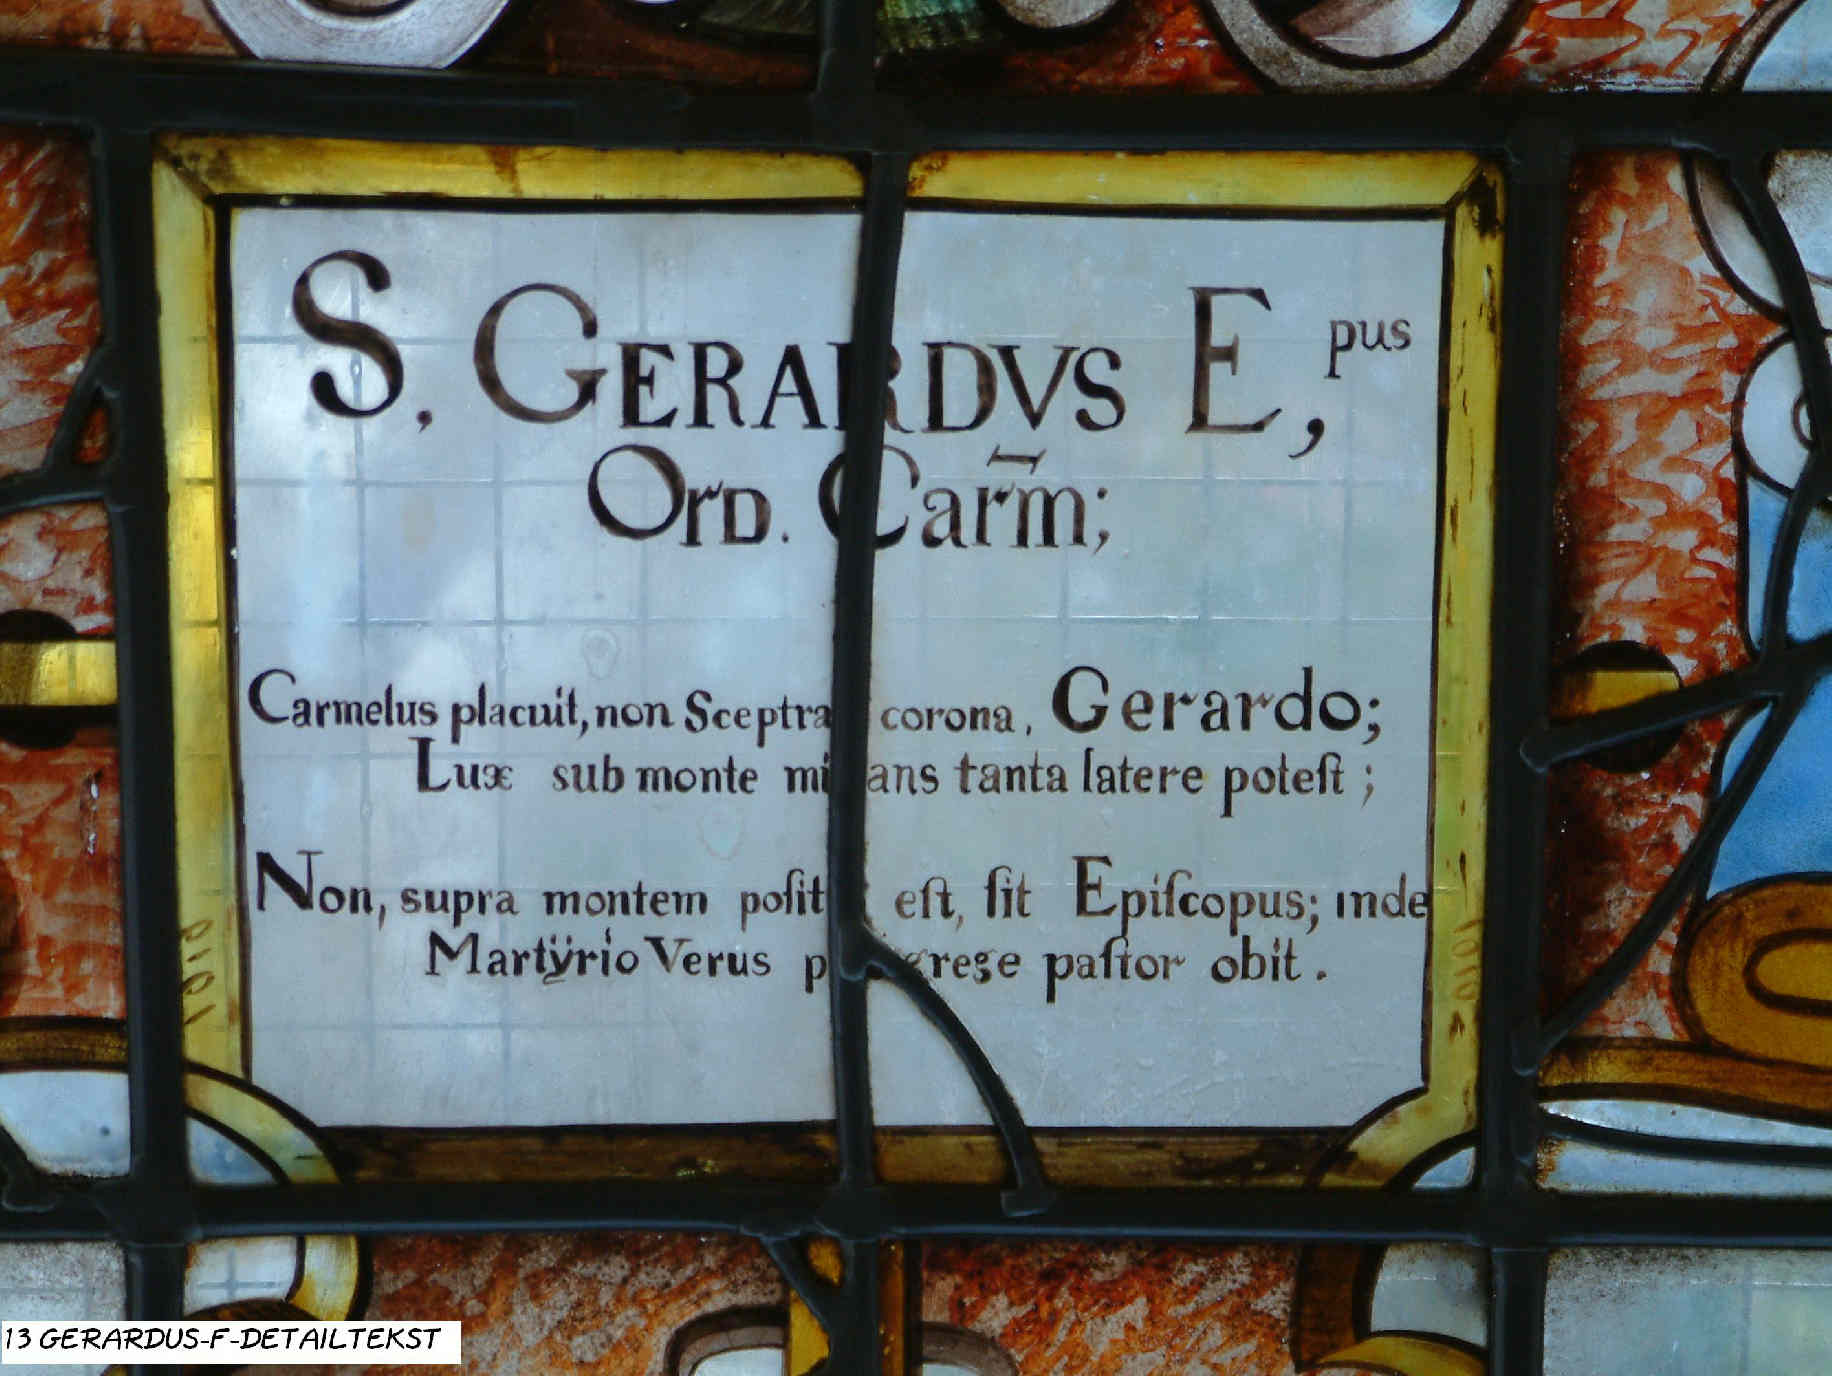 S. GERARDVS E,pus
OrD. Carm̄;
Carmelus placuit, non Sceptra corona, Gerardo;
Lux sub monte micans tanta latere poteſt ;
Non, supra montem poſit eſt, ſit Epiſcopus; inde
Martÿrio Verus grege paſtor obit.
13 GERARDUS-F-DETAILTEKST